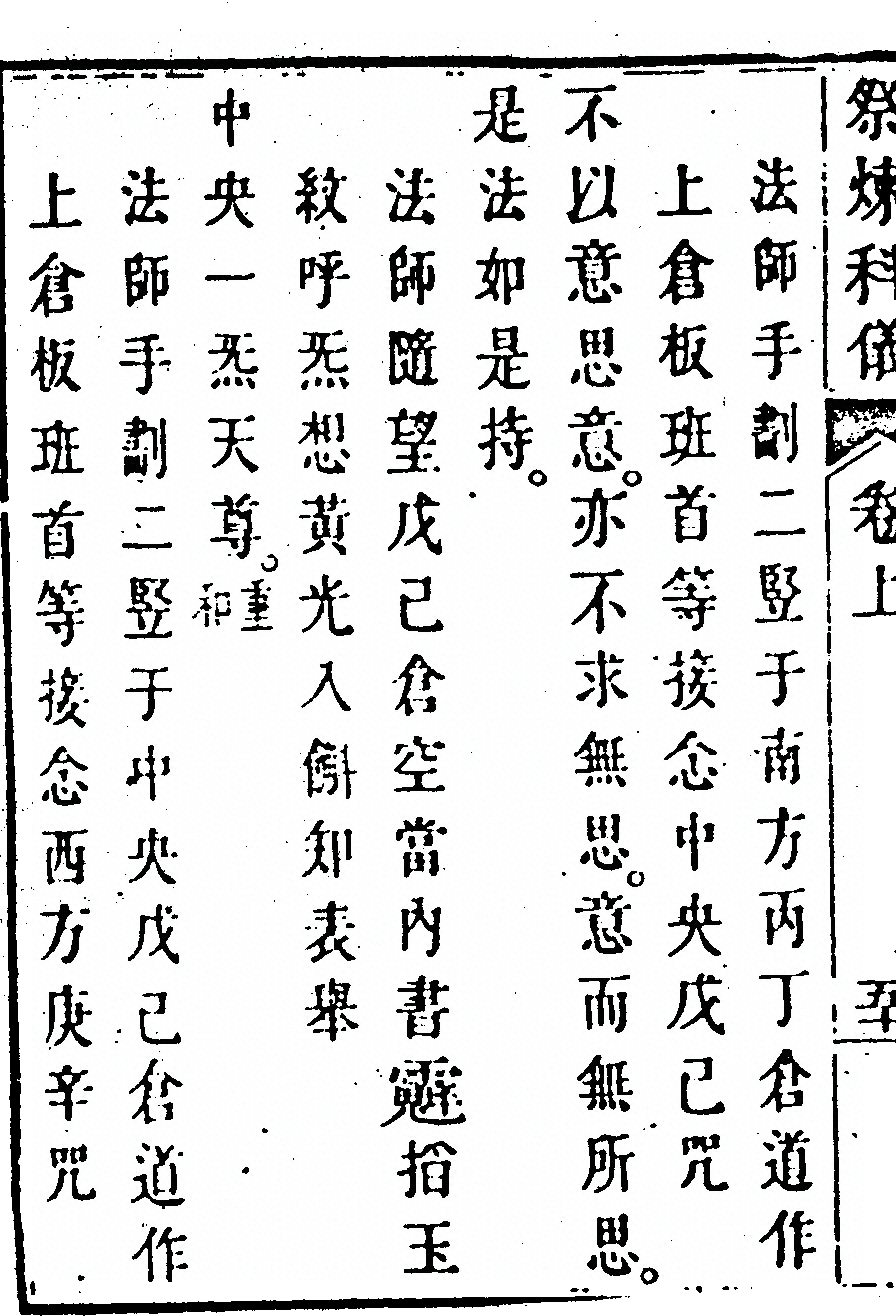 祭煉科儀 卷上 五十
法師手劃二竪于南方丙丁倉道作
上倉板班首等接念中央戊己咒
不以意思意。亦不求無思。意而無所思。
是法如是持。
法師隨望戊己倉空當內書指玉
紋呼炁想黃光入斛知表舉
中央一炁天尊。重和
法師手劃二竪于中央戊己倉道作
上倉板班首等接念西方庚辛咒